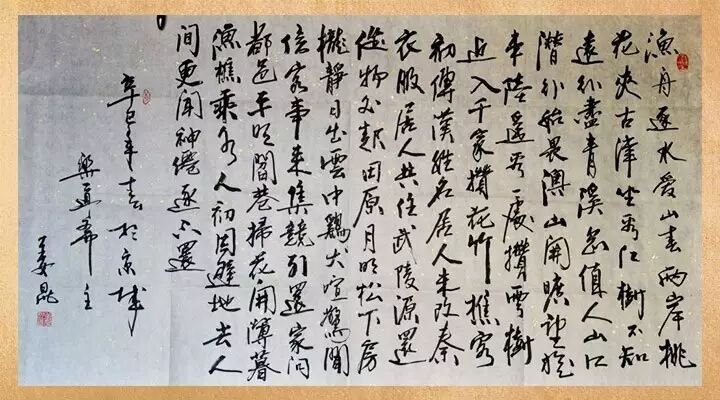 漁舟逐水爱山春兩岸桃
花夾古津坐看紅樹不知
遠行盡青溪忽值人山口
潛行始畏澳山開曠望旋
平陸遥看一處攢雲樹
近入千家攢花竹樵客
初傳漢姓名居人未改秦
衣服居人共住武陵源還
從物外起田原月明松下房
櫳靜日出雲中鷄犬喧驚聞
俗客争來集競引還家問
都邑平明閭巷掃花開薄暮
漁樵乘水人初因避地去人
間更聞神僊遂不還
辛巳年春於京城
樂直齋主
姜昆